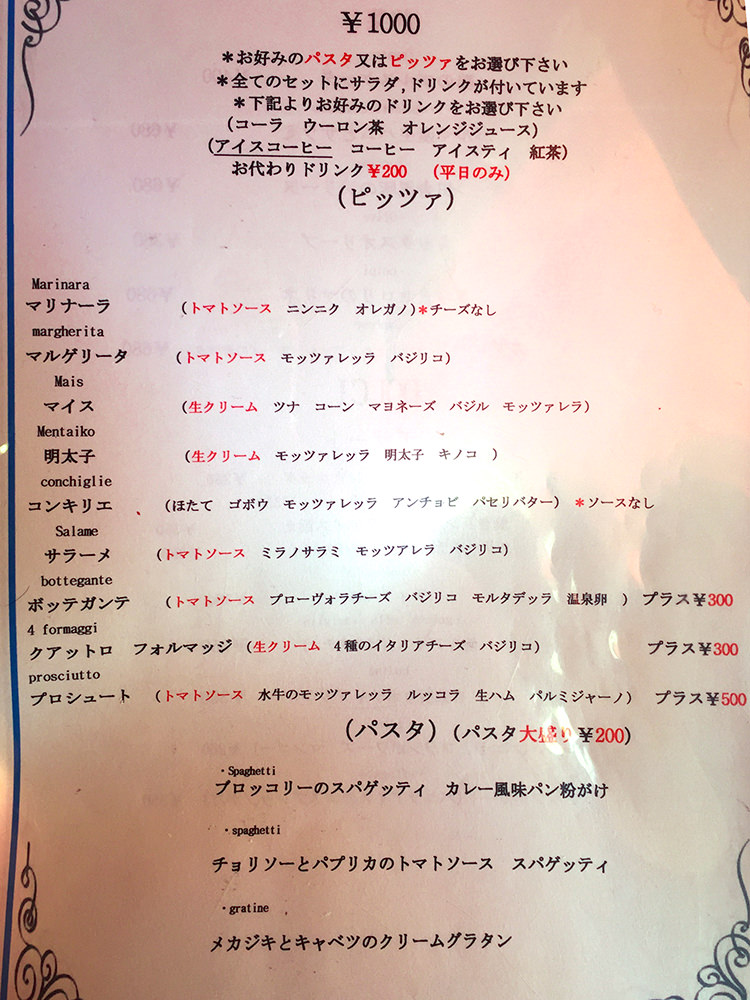 ￥1000
＊お好みのパスタ又はピッツァをお選び下さい
＊全てのセットにサラダ,ドリンクが付いています
＊下記よりお好みのドリンクをお選び下さい
(コーラ　ウーロン茶　オレンジジュース)
(アイスコーヒー　コーヒー　アイスティ　紅茶)
お代わりドリンク￥200　(平日のみ)
(ピッツァ)
Marinara
マリナーラ　(トマトソース　ニンニク　オレガノ)＊チーズなし
margherita
マルゲリータ　(トマトソース　モッツァレッラ　バジリコ)
Mais
マイス　(生クリーム　ツナ　コーン　マヨネーズ　バジル　モッツァレラ)
Mentaiko
明太子　(生クリーム　モッツァレッラ　明太子　キノコ　)
conchiglie
コンキリエ　(ほたて　ゴボウ　モッツァレッラ　アンチョビ　パセリバター)　＊ソースなし
Salame
サラーメ　(トマトソース　ミラノサラミ　モッツアレラ　バジリコ)
bottegante
ボッテガンテ　(トマトソース　プローヴォラチーズ　バジリコ　モルタデッラ　温泉卵　)　プラス￥300
4 formaggi
クアットロ　フォルマッジ　(生クリーム　4種のイタリアチーズ　バジリコ)　プラス￥300
prosciutto
プロシュート　(トマトソース　水牛のモッツァレッラ　ルッコラ　生ハム　パルミジャーノ)　プラス￥500
(パスタ)　(パスタ大盛り￥200)
・Spaghetti
ブロッコリーのスパゲッティ　カレー風味パン粉がけ
・spaghetti
チョリソーとパプリカのトマトソース　スパゲッティ
・gratine
メカジキとキャベツのクリームグラタン